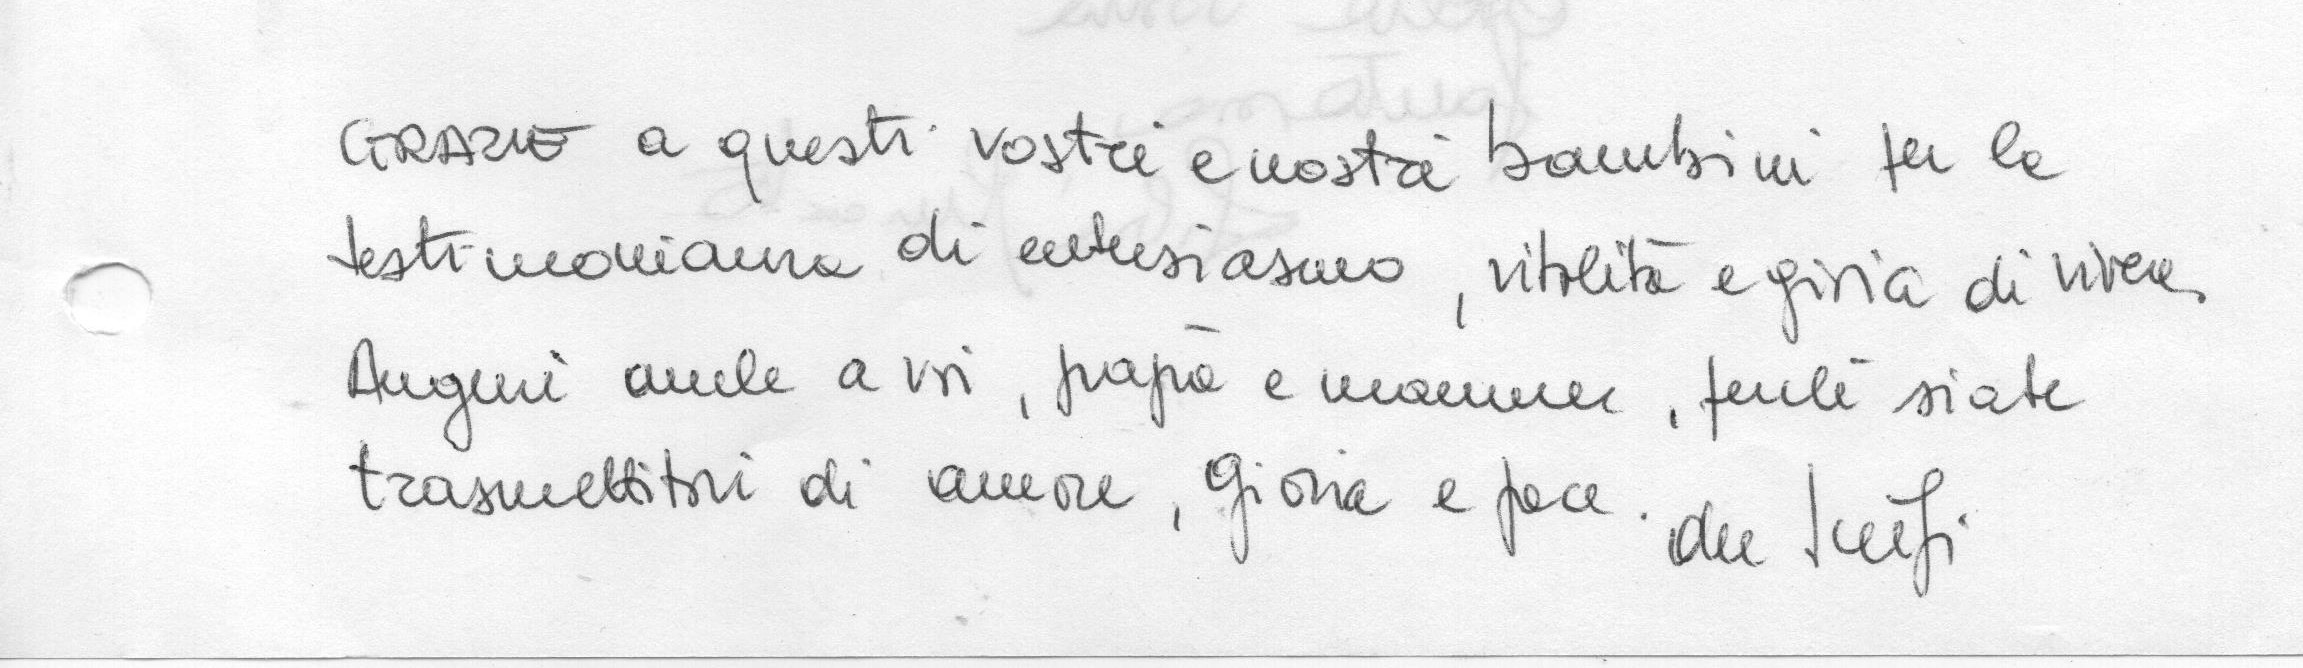 GRAZIE a questi vostri e nostri bambini per la
testimonianza di entusiasmo, vitalità e gioia di vivere.
Auguri anche a voi, papà e mamme, perché siate
trasmettitori di amore, gioia e pace. don Luigi